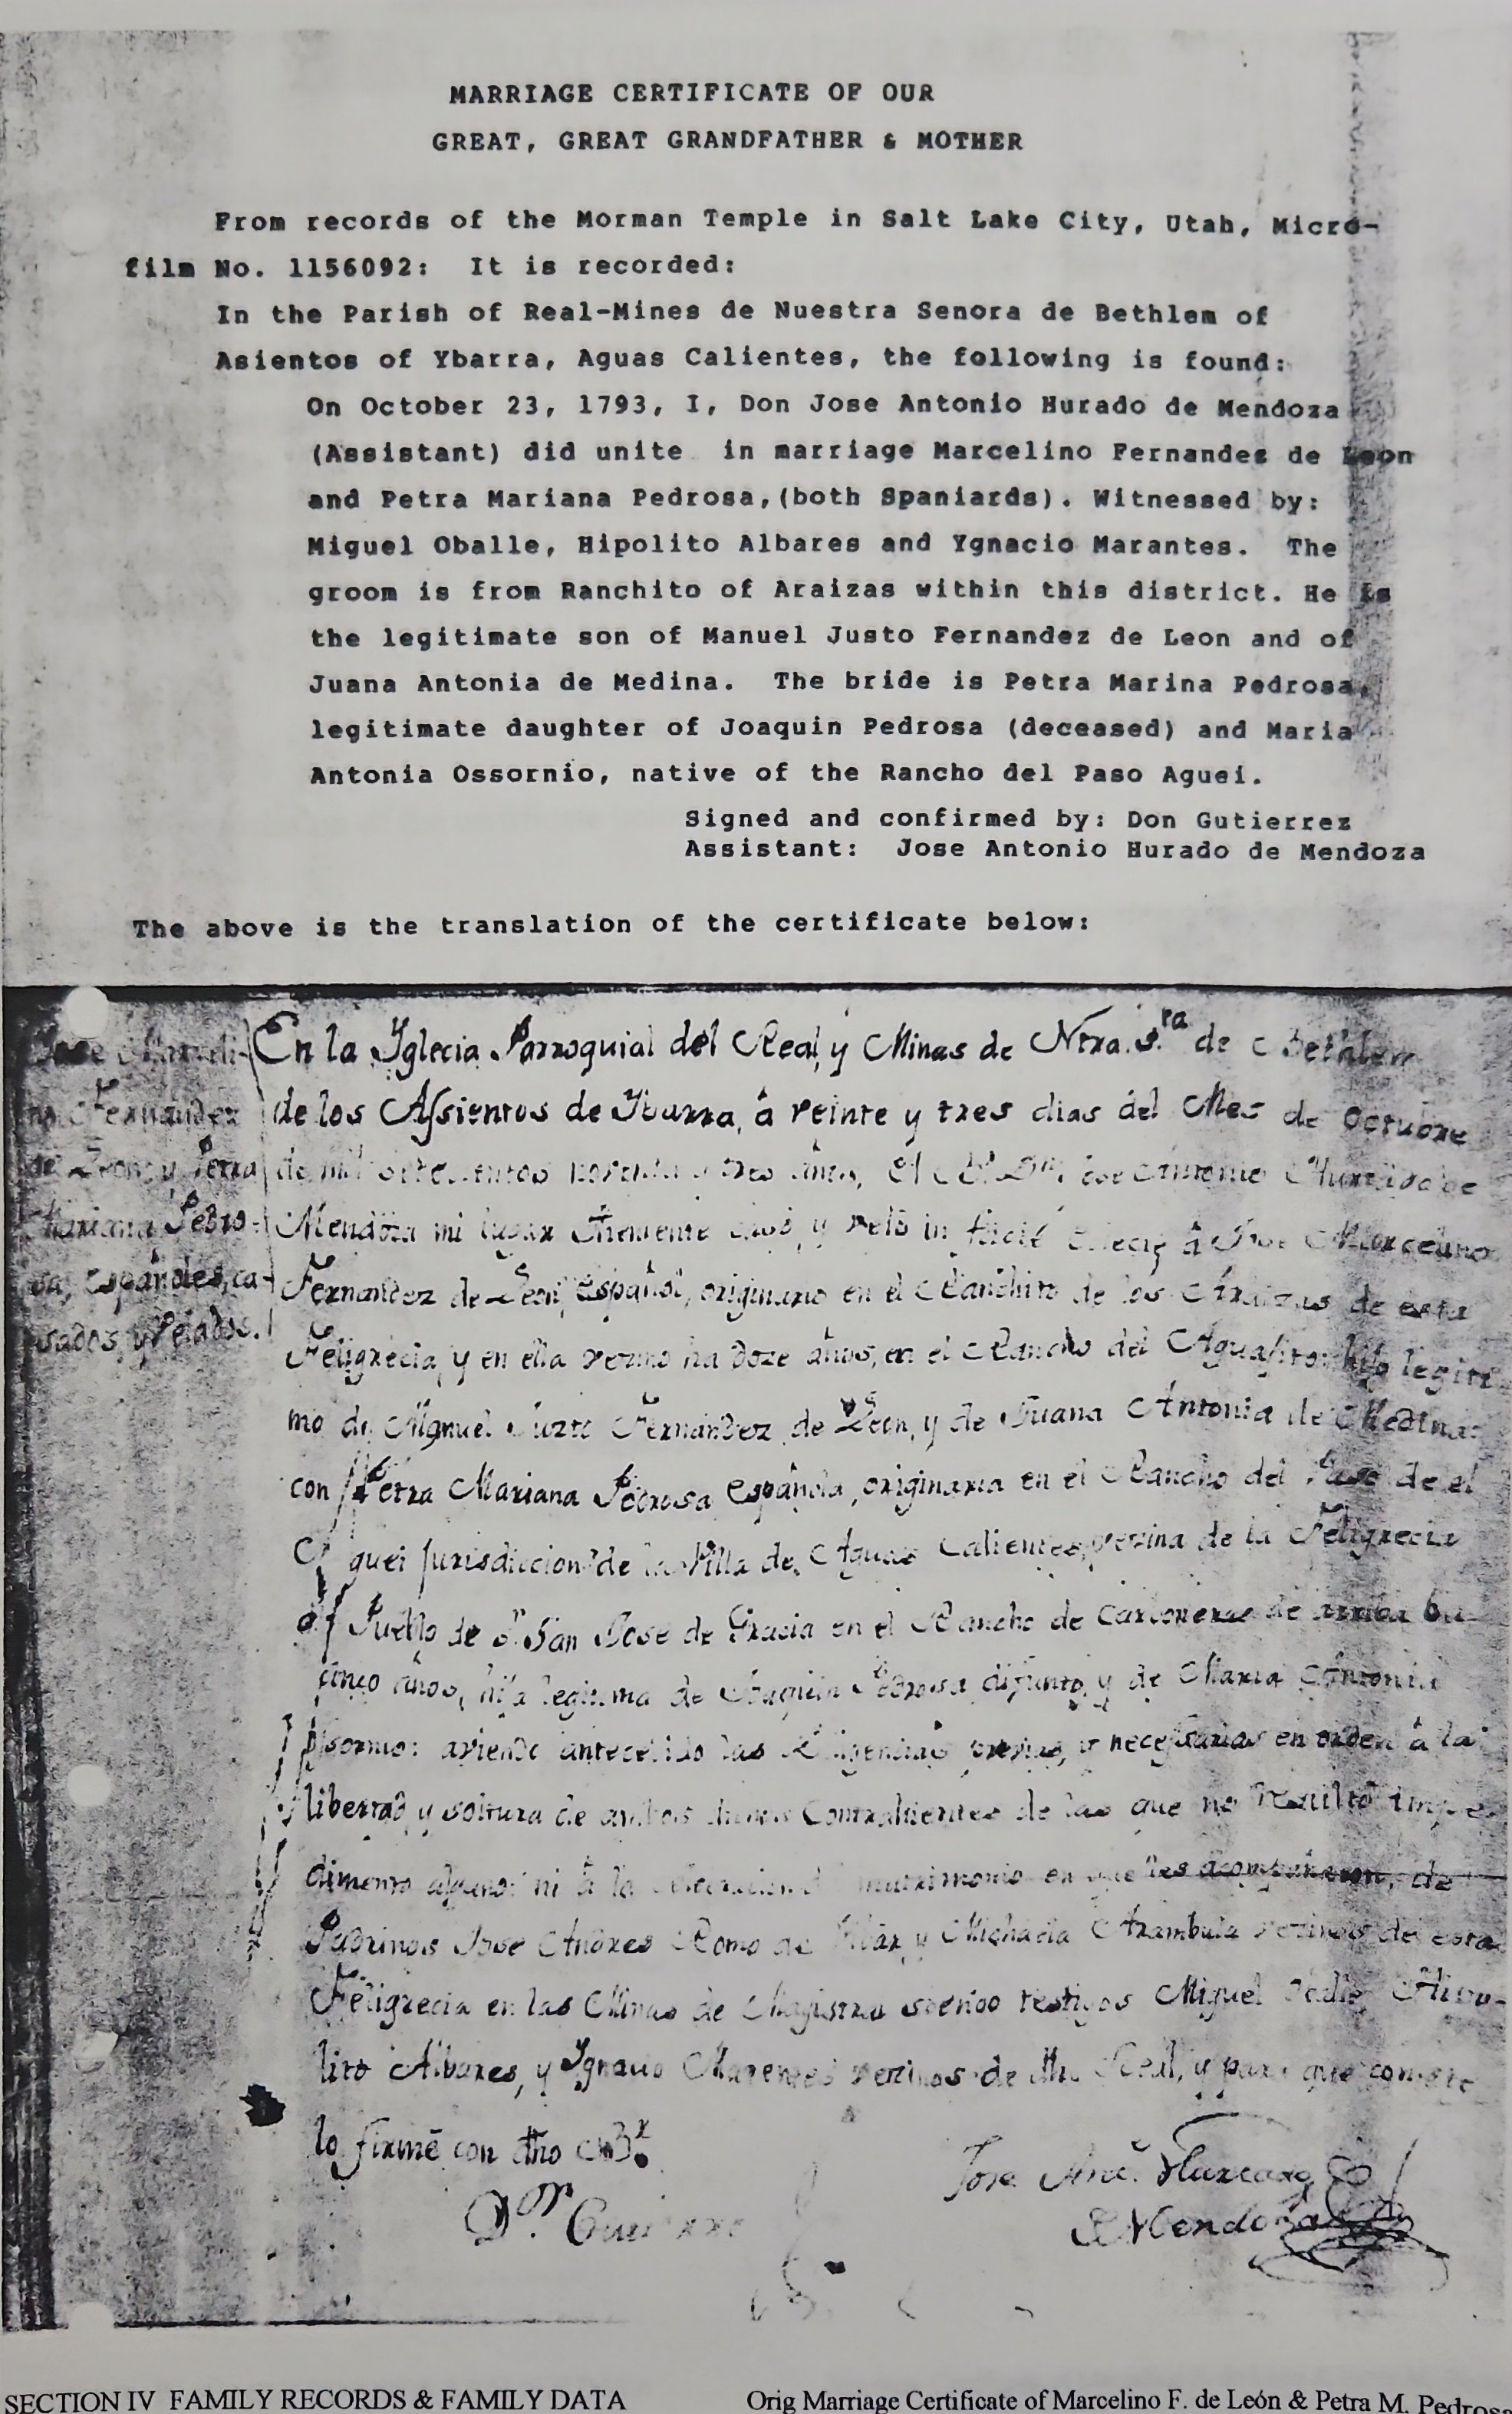 MARRIAGE CERTIFICATE OF OUR
GREAT, GREAT GRANDFATHER & MOTHER
From records of the Morman Temple in Salt Lake City, Utah, Micro-
film No. 1156092: It is recorded:
In the Parish of Real-Mines de Nuestra Senora de Bethlem of
Asientos of Ybarra, Aguas Calientes, the following is found:
On October 23, 1793, I, Don Jose Antonio Hurado de Mendoza
(Assistant) did unite in marriage Marcelino Fernandez de Leon
and Petra Mariana Pedrosa, (both Spaniards). Witnessed by:
Miguel Oballe, Hipolito Albares and Ygnacio Marantes. The
groom is from Ranchito of Araizas within this district. He is
the legitimate son of Manuel Justo Fernandez de Leon and of
Juana Antonia de Medina. The bride is Petra Marina Pedrosa,
legitimate daughter of Joaquin Pedrosa (deceased) and Maria
Antonia Ossornio, native of the Rancho del Paso Aguei.
Signed and confirmed by: Don Gutierrez
Assistant: Jose Antonio Hurado de Mendoza
The above is the translation of the certificate below:
Jose Marceli-
no Fernandez
de Leon, y Petra
Mariana Pedro-
sa, españoles, ca-
sados, y Velados.
En la Yglecia Parroquial del Real, y Minas de Ntra. S.ra de Bethlem
de los Assientos de Ybarra, â veinte y tres dias del Mes de Octubre
de mil setecientos noventa y tres años, el Antonio Hurtado de
Mendoza mi lugar Theniente casó, y veló in facie à Marcelino
Fernandez de Leon, español, originario en el Ranchito de los Araizas de esta
Feligrecia, y en ella vezino ha doze años, en el Rancho del hijo legiti
mo de Manuel Justo Fernandez de Leon, y de Juana Antonia de Medina:
con Petra Mariana Pedrosa española, originaria en el Rancho del Paso de el
guei jurisdiccion de la Villa de Aguas Calientes, vezina de la Feligrecia
Pueblo de S.r San Jose de Gracia en el Rancho de Carboneras de arriba
cinco años, hija legitima de Joaquin Pedrosa difunto, y de Maria Antonia
aviendo antecedido las Diligencias previas, y necessarias en orden â la
libertad y soltura de ambos Contrahientes de las que no resultó impe
dimento alguno: ni â la matrimonio en que les acompañaron, de
Padrinos Jose Andres Romo de y Michaela Arambula vezinos de esta
Feligrecia en las Minas de siendo testigos Miguel Hipo-
lito Albares, y Ygnacio vezinos de dho Real, y para que conste
lo firmé con dho
D.or Gutierrez
Jose Hurtado
Mendoza
SECTION IV FAMILY RECORDS & FAMILY DATA
Orig Marriage Certificate of Marcelino F. de León & Petra M. Pedrosa